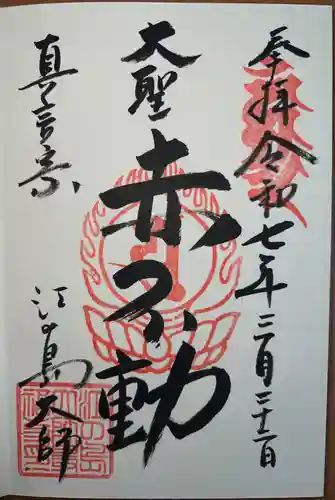 奉拝 令和七年三月三十一日
大聖 赤不動
真言宗
江の島大師